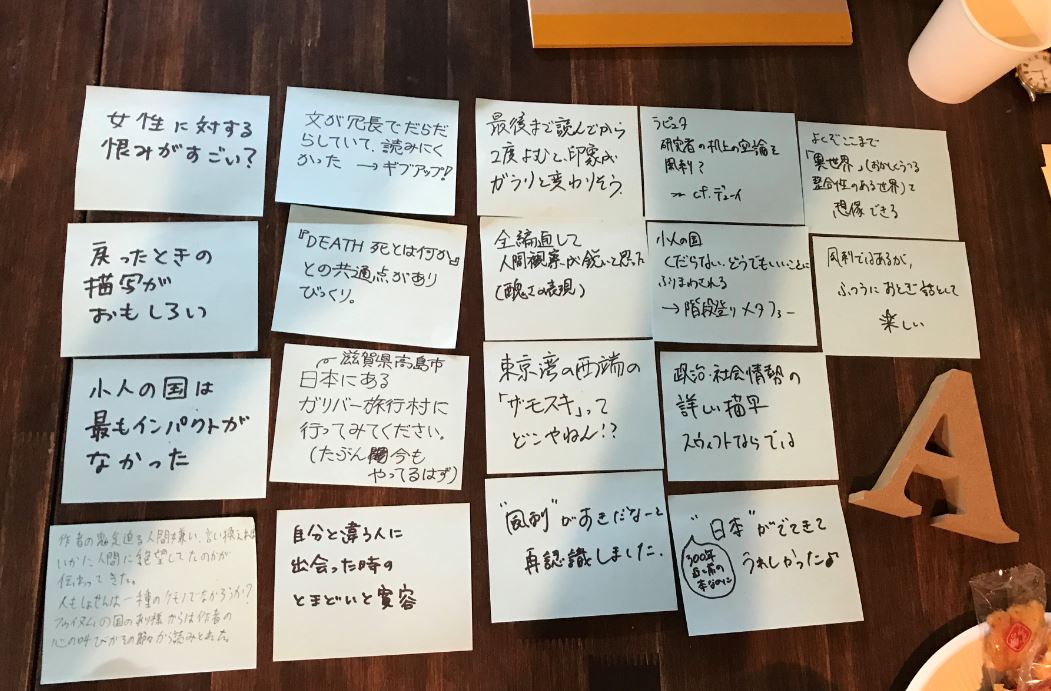 女性に対する
恨みがすごい?
文が冗長でだらだ
らしていて、読みにく
かった →ギブアップ!
最後まで読んでから
2度よむと、印象が
ガラリと変わりそう。
ラピュタ
研究者の机上の空論を
風刺?
cf.デューイ
よくぞここまで
「異世界」(おかしくうつる
整合性のある世界)で
想像できる
戻ったときの
描写が
おもしろい
『DEATH 死とは何か』
との共通点があり
びっくり。
全編通して
人間観察が鋭いと思った
(醜さの表現)
小人の国
くだらない、どうでもいいことに
ふりまわされる
→階段登りメタファー
風刺ではあるが、
ふつうにおとぎ話として
楽しい
小人の国は
最もインパクトが
なかった
滋賀県高島市
日本にある
ガリバー旅行村に
行ってみてください。
(たぶん今も
やってるはず)
東京湾の西端の
「ザモスキ」って
どこやねん!?
政治・社会情勢の
詳しい描写
スウィフトならでは
作者の 人間嫌い、言い換えれば
いかに人間に絶望してたのかが
伝わってきた。
人もしょせんは一種のケモノでなかろうか?
フウイヌムの国の 様からは作者の
心の叫びがその節々から読みとれた。
自分と違う人に
出会った時の
とまどいと寛容
"風刺"がすきだなーと
再認識しました.
"日本"がでてきて
うれしかったよ
300年
前の
本なのに
A